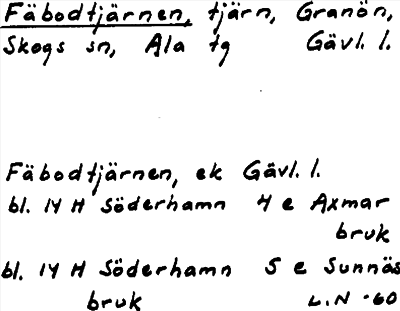 Fäbodtjärnen, tjärn, Granön,
Skogs sn, Ala tg Gävl. l.
Fäbodtjärnen, ek Gävl. l.
bl. 14 H Söderhamn 4 e Axmar
bruk
bl. 14 H Söderhamn 5 e Sunnäs
bruk L.N -60